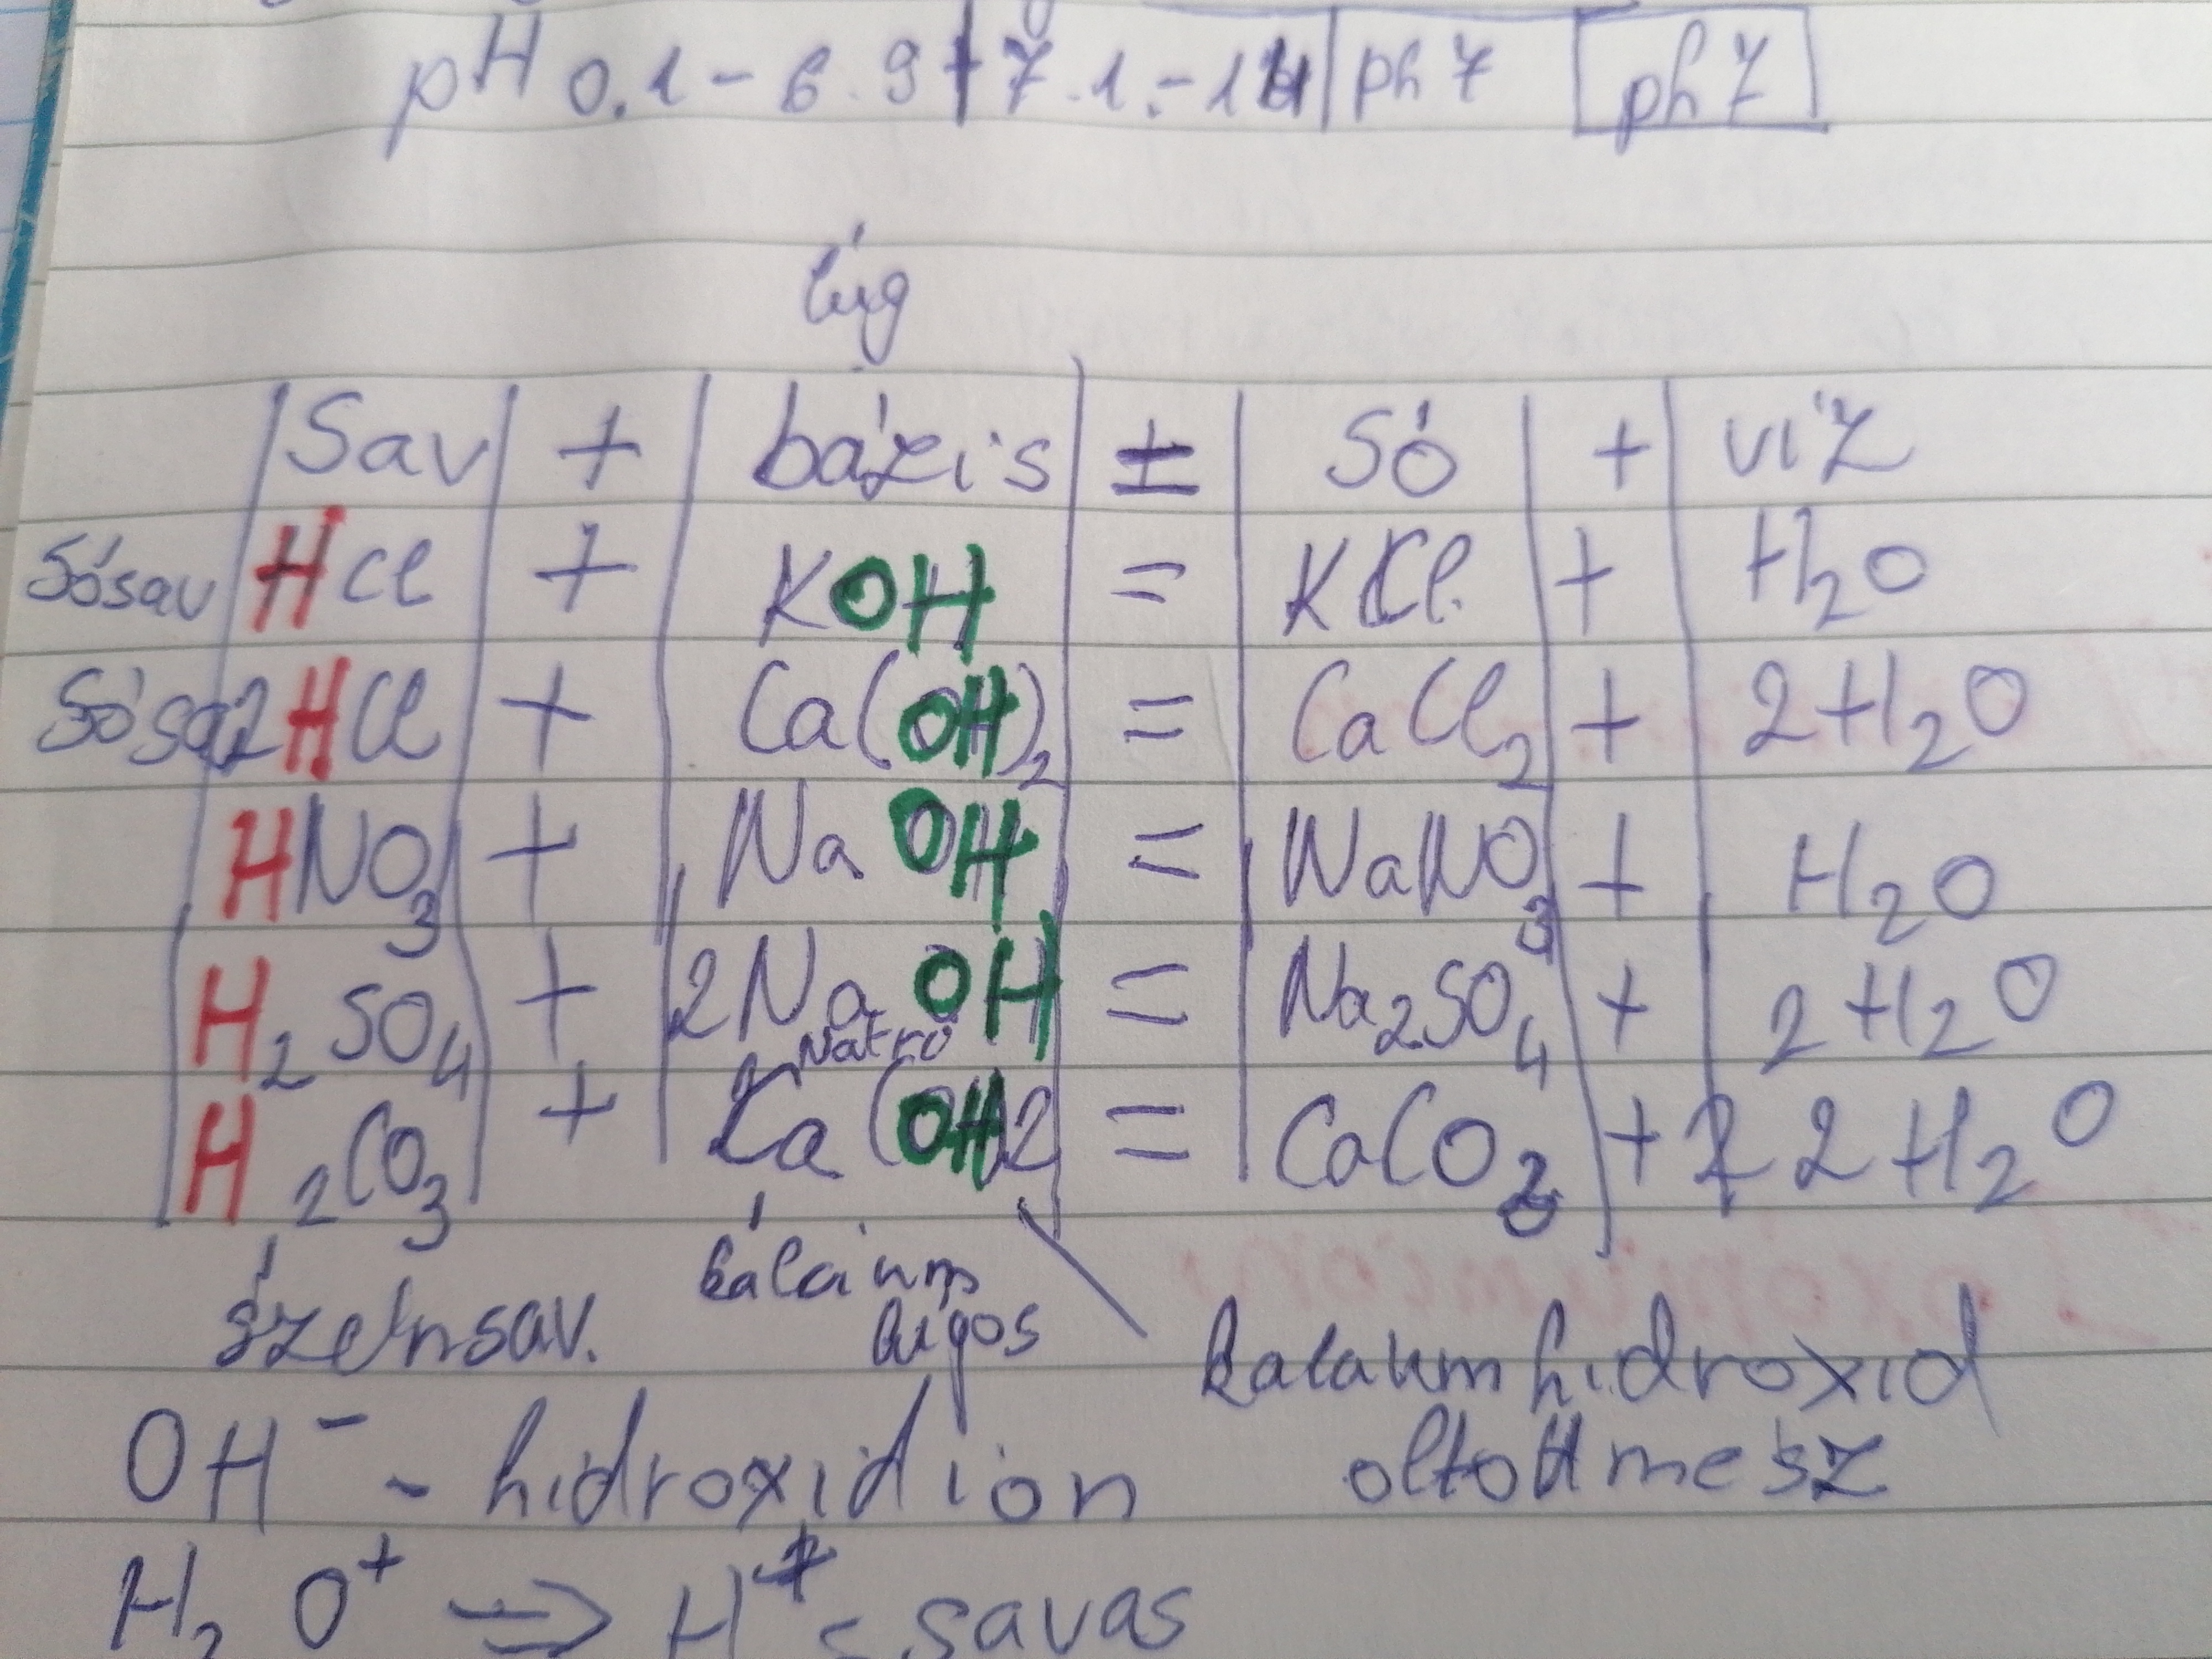 pH 0.1 - 6.9 | 7.1.-14 | ph 7 ph 7
lúg
Sav + bázis = Só + víz
Sósav HCl + KOH = KCl + H₂O
Sósa 2HCl + Ca(OH)₂ = CaCl₂ + 2H₂O
HNO₃ + NaOH = NaNO₃ + H₂O
H₂SO₄ + 2NaOH = Na₂SO₄ + 2H₂O
Nátró
H₂CO₃ + Ca(OH)2 = CaCO₃ + 2H₂O
szénsav. kálcium
lúgos
kalcium hidroxid
OH⁻ - hidroxid ion oltott mész
O⁺ ⇒ H⁺ savas